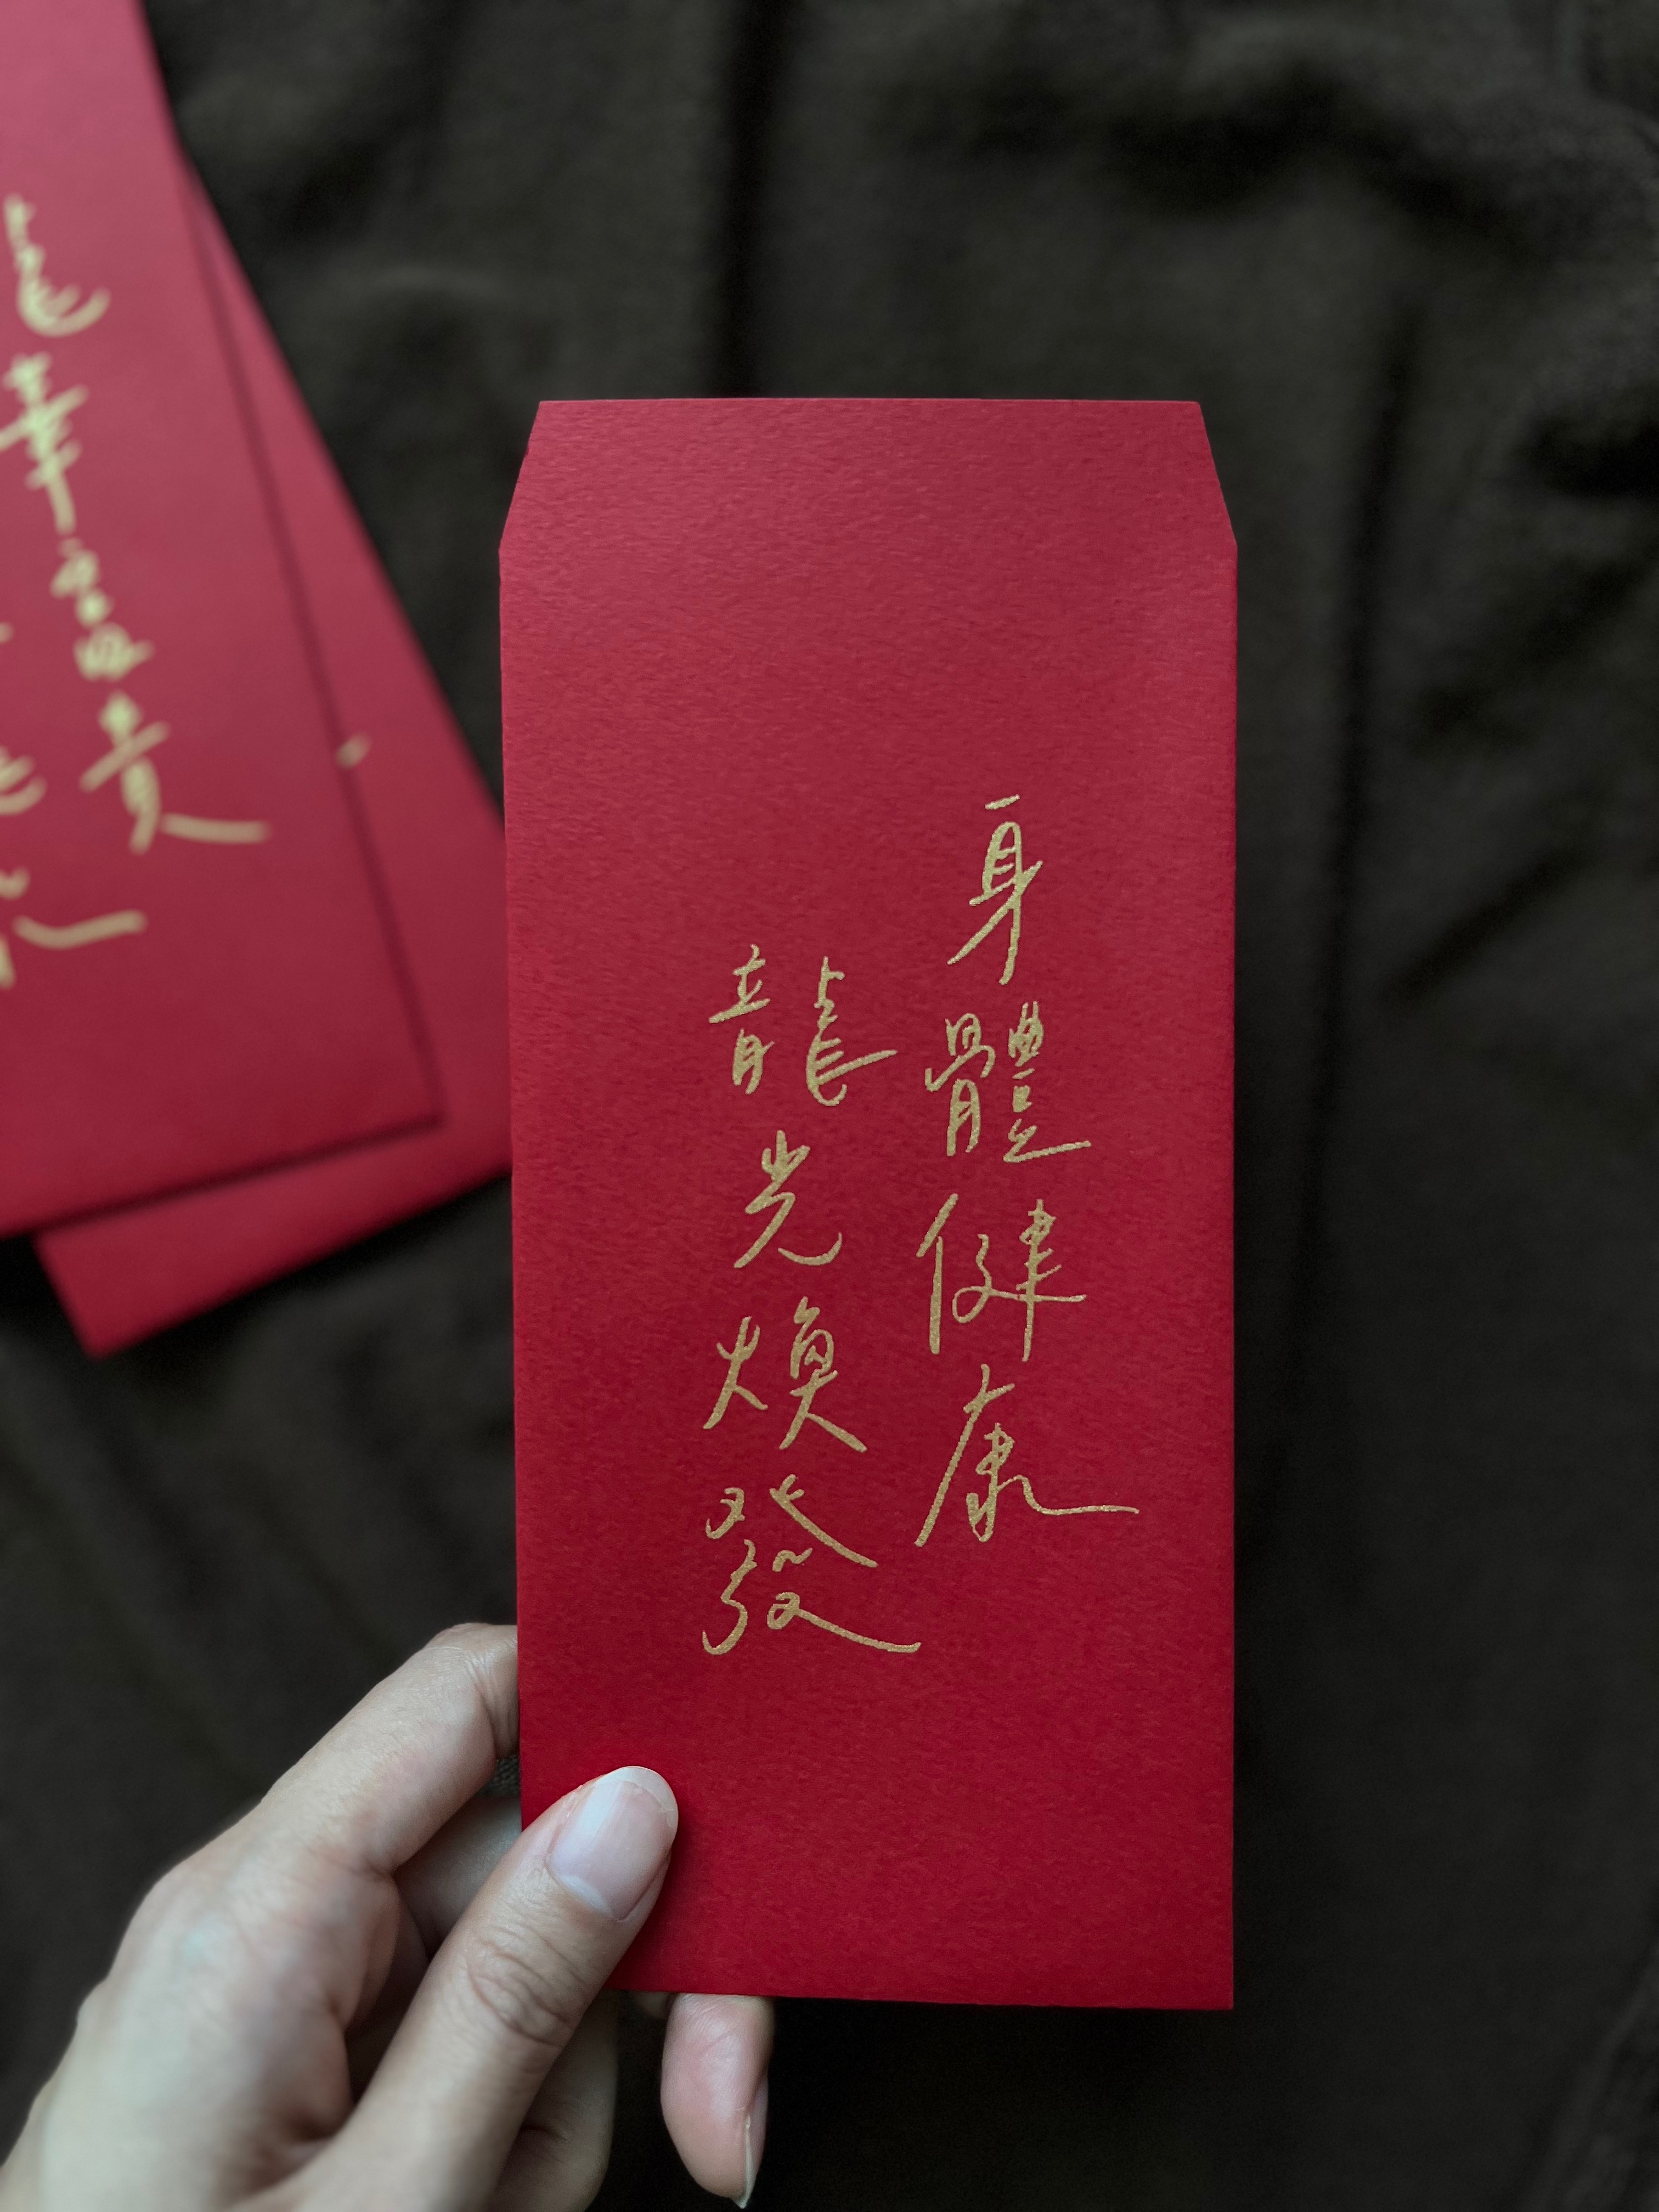 身體健康
龍光煥發
龍華富貴